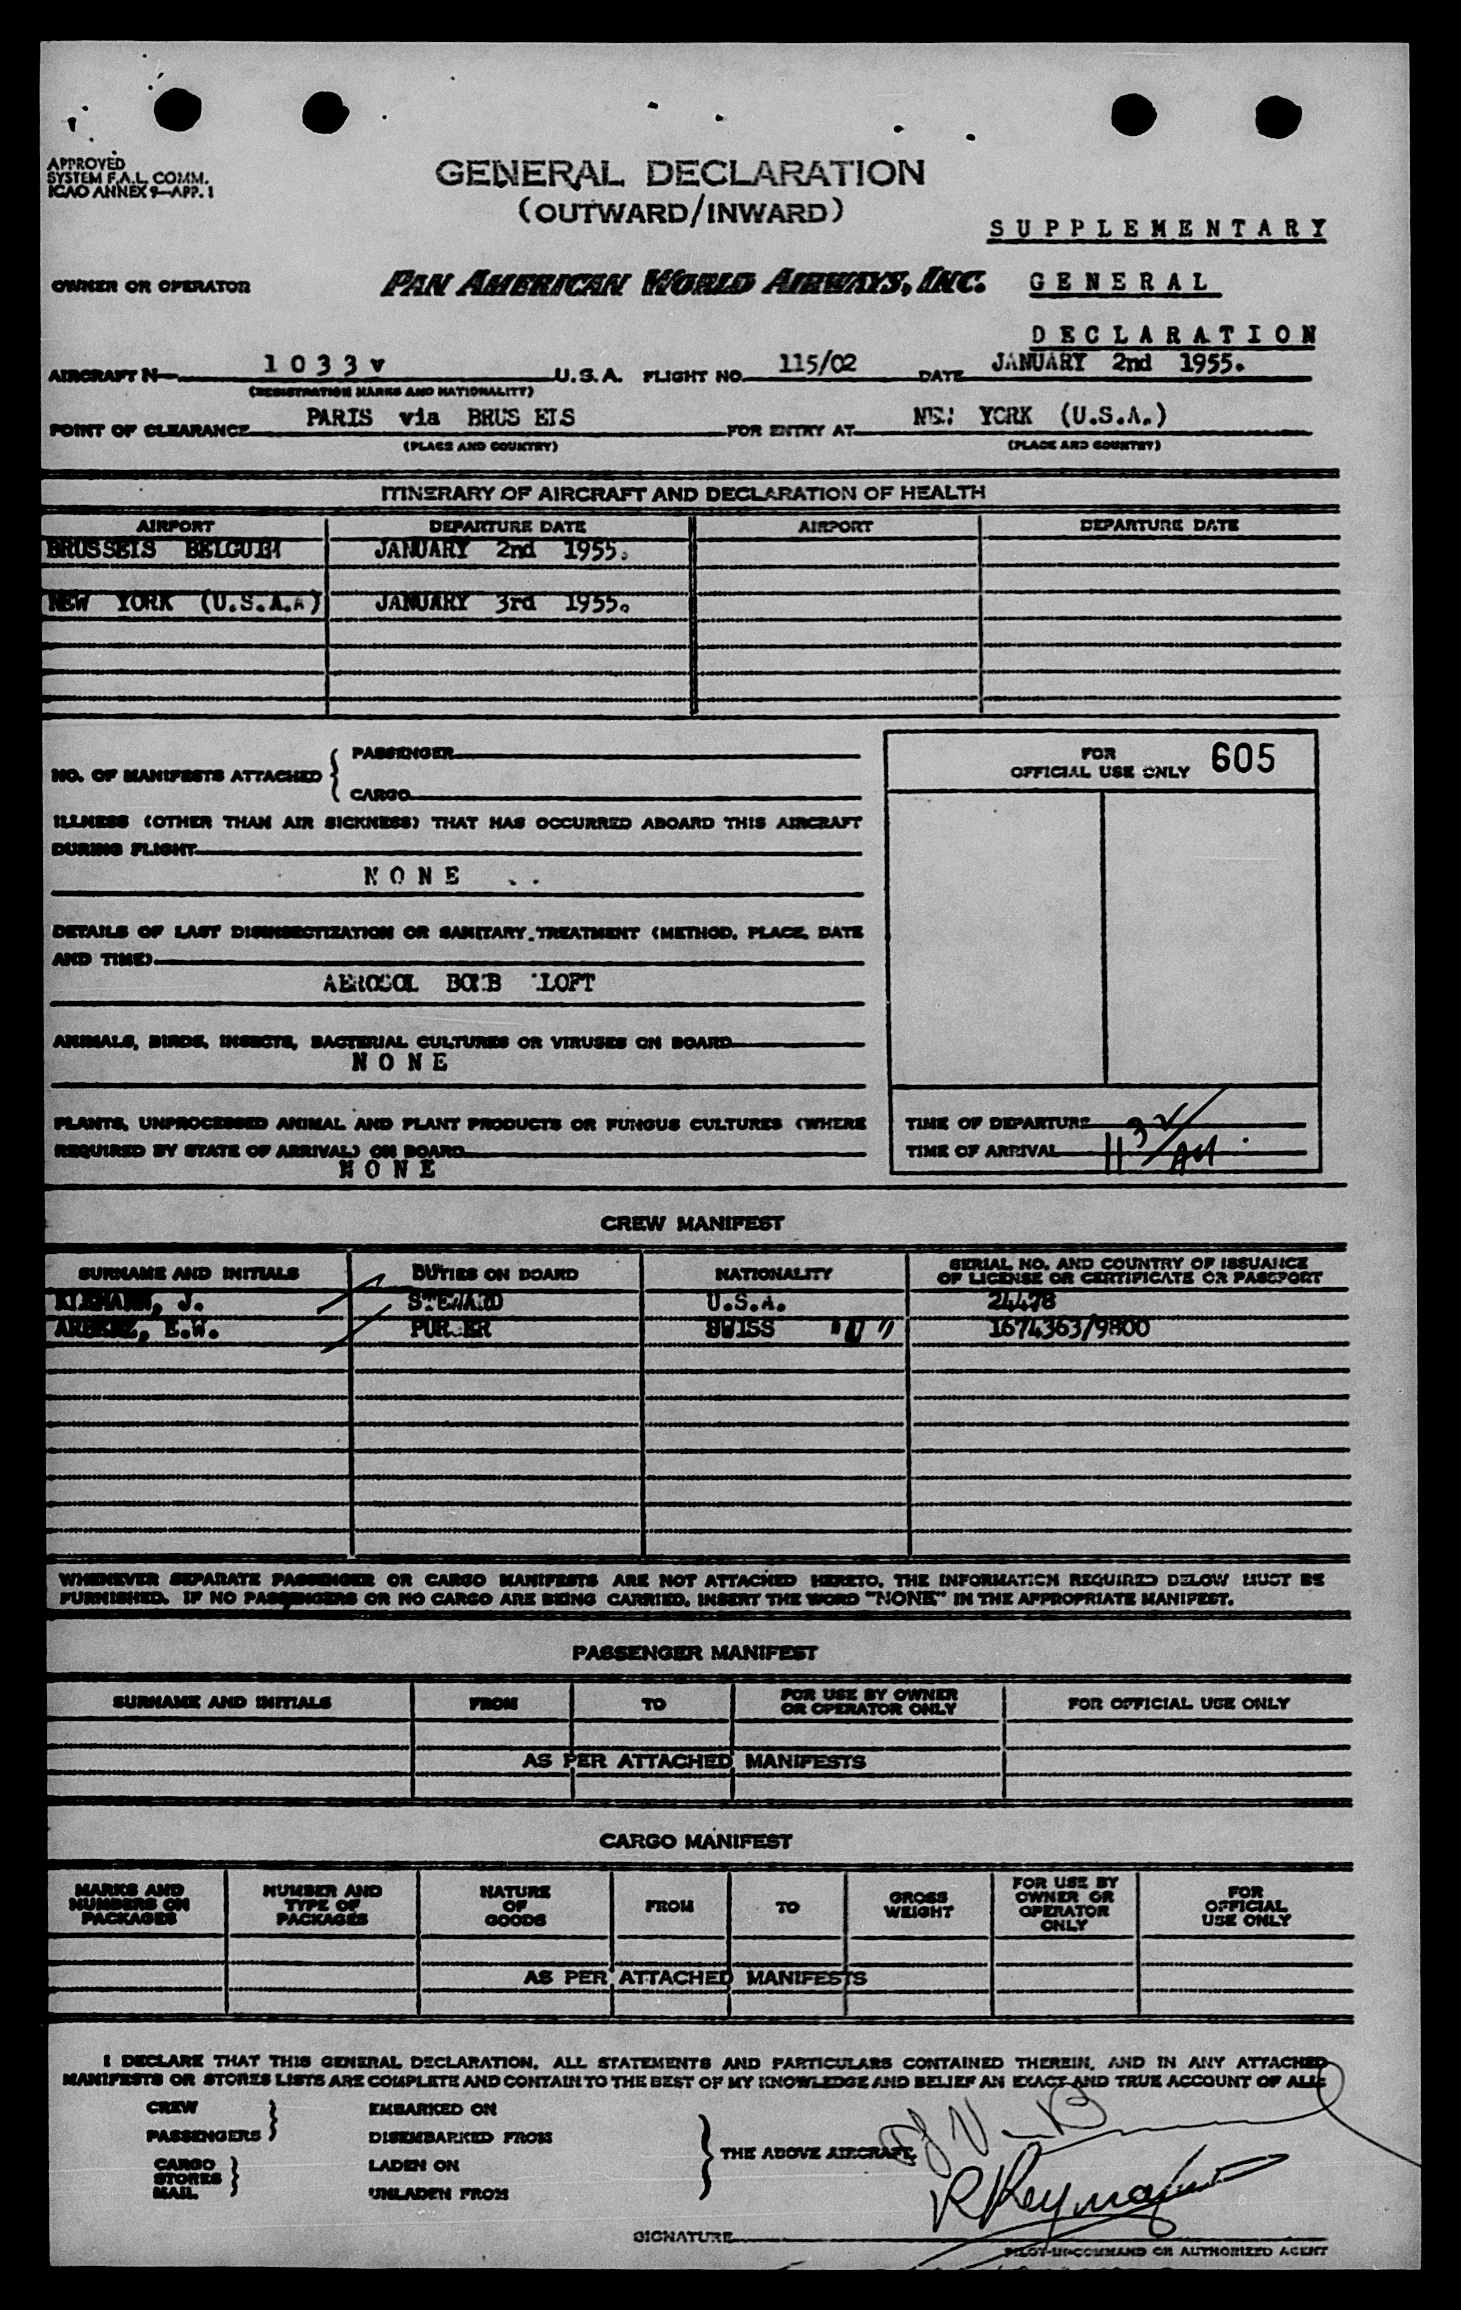 APPROVED
SYSTEM F.A.L. COMM.
ICAO ANNEX 9—APP. 1
GENERAL DECLARATION
(OUTWARD/INWARD)
SUPPLEMENTARY
OWNER OR OPERATOR PAN AMERICAN WORLD AIRWAYS, INC. GENERAL
DECLARATION
AIRCRAFT N— 1033v U.S.A. FLIGHT NO. 115/02 DATE JANUARY 2nd 1955.
(REGISTRATION MARKS AND NATIONALITY)
POINT OF CLEARANCE PARIS via BRUS ELS FOR ENTRY AT NEW YORK (U.S.A.)
(PLACE AND COUNTRY) (PLACE AND COUNTRY)
ITINERARY OF AIRCRAFT AND DECLARATION OF HEALTH
AIRPORT DEPARTURE DATE AIRPORT DEPARTURE DATE
BRUSSELS BELGUIM JANUARY 2nd 1955.
NEW YORK (U.S.A.) JANUARY 3rd 1955.
NO. OF MANIFESTS ATTACHED { PASSENGER
CARGO
FOR OFFICIAL USE ONLY 605
ILLNESS (OTHER THAN AIR SICKNESS) THAT HAS OCCURRED ABOARD THIS AIRCRAFT
DURING FLIGHT
NONE
DETAILS OF LAST DISINSECTIZATION OR SANITARY TREATMENT (METHOD, PLACE, DATE
AND TIME)
AEROSOL BOMB LOFT
ANIMALS, BIRDS, INSECTS, BACTERIAL CULTURES OR VIRUSES ON BOARD
NONE
PLANTS, UNPROCESSED ANIMAL AND PLANT PRODUCTS OR FUNGUS CULTURES (WHERE
REQUIRED BY STATE OF ARRIVAL) ON BOARD
NONE
TIME OF DEPARTURE
TIME OF ARRIVAL 11 32/AM
CREW MANIFEST
SURNAME AND INITIALS DUTIES ON BOARD NATIONALITY SERIAL NO. AND COUNTRY OF ISSUANCE
OF LICENSE OR CERTIFICATE OR PASSPORT
J. STEWARD U.S.A. 24478
E.W. PURSER SWISS "U" 1674363/9800
WHENEVER SEPARATE PASSENGER OR CARGO MANIFESTS ARE NOT ATTACHED HERETO, THE INFORMATION REQUIRED BELOW MUST BE
FURNISHED. IF NO PASSENGERS OR NO CARGO ARE BEING CARRIED, INSERT THE WORD "NONE" IN THE APPROPRIATE MANIFEST.
PASSENGER MANIFEST
SURNAME AND INITIALS FROM TO FOR USE BY OWNER OR OPERATOR ONLY FOR OFFICIAL USE ONLY
AS PER ATTACHED MANIFESTS
CARGO MANIFEST
MARKS AND NUMBERS ON PACKAGES NUMBER AND TYPE OF PACKAGES NATURE OF GOODS FROM TO GROSS WEIGHT FOR USE BY OWNER OR OPERATOR ONLY FOR OFFICIAL USE ONLY
AS PER ATTACHED MANIFESTS
I DECLARE THAT THIS GENERAL DECLARATION, ALL STATEMENTS AND PARTICULARS CONTAINED THEREIN, AND IN ANY ATTACHED
MANIFESTS OR STORES LISTS ARE COMPLETE AND CONTAIN TO THE BEST OF MY KNOWLEDGE AND BELIEF AN EXACT AND TRUE ACCOUNT OF ALL:
CREW EMBARKED ON
PASSENGERS DISEMBARKED FROM
THE ABOVE AIRCRAFT.
CARGO LADEN ON
STORES
MAIL UNLADEN FROM
SIGNATURE
PILOT-IN-COMMAND OR AUTHORIZED AGENT